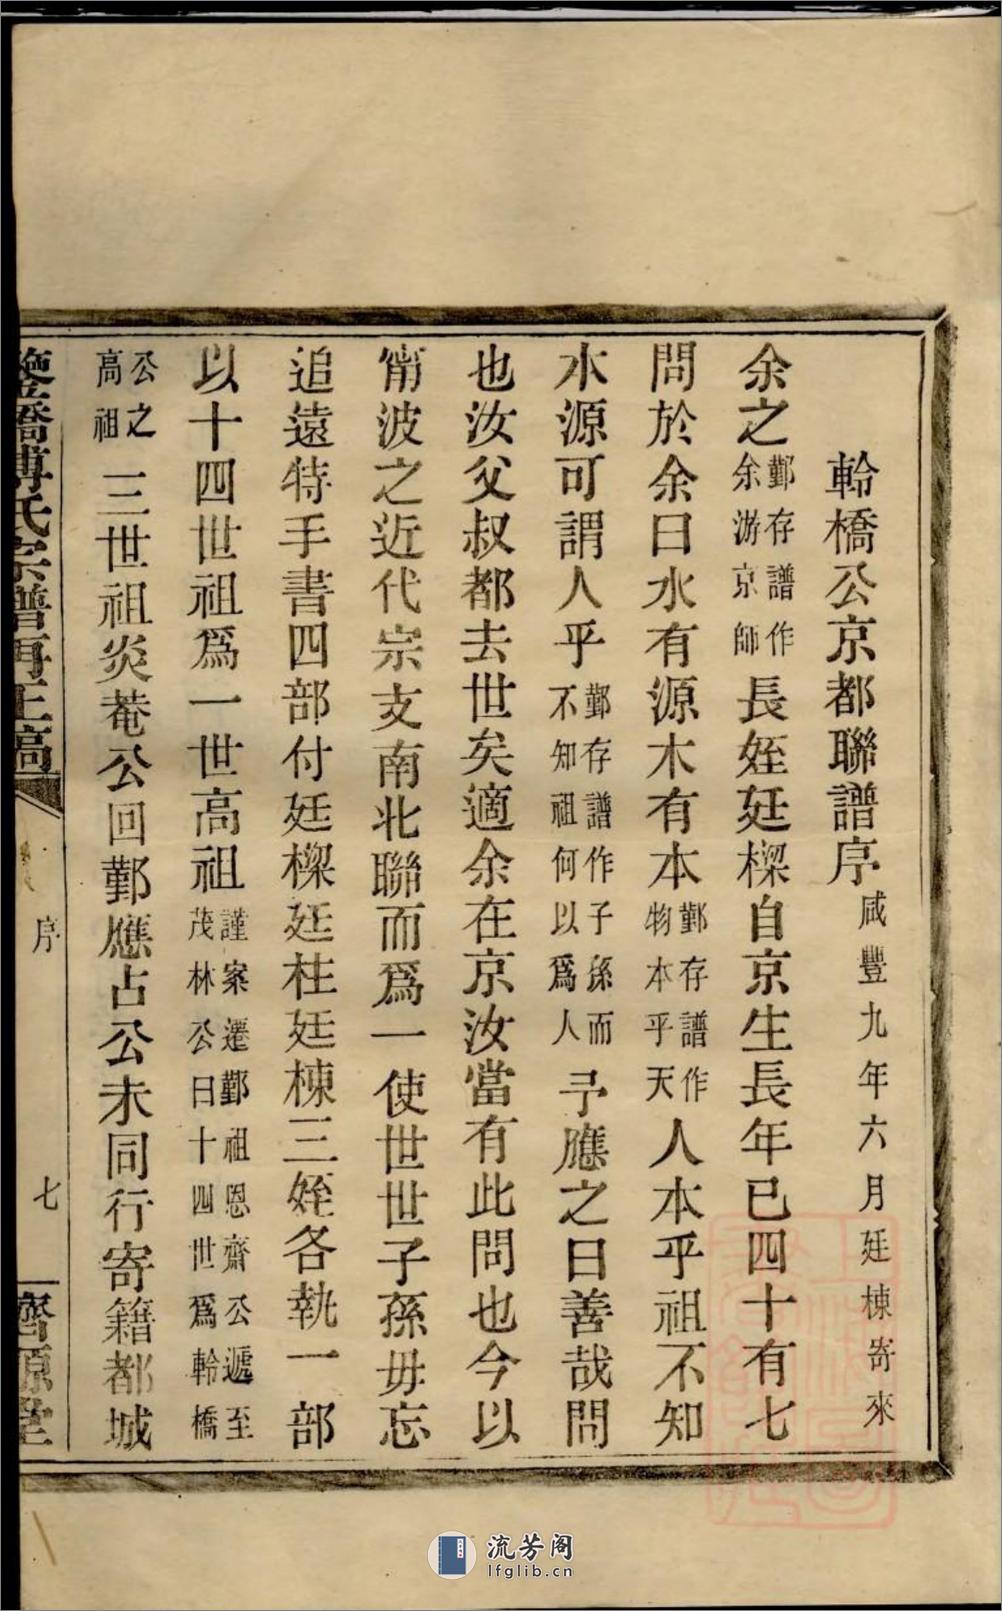 軨橋公京都聯譜序咸豐九年六月廷棟寄來
余之鄞存譜作余游京師長姪廷樑自京生長年已四十有七
問於余曰水有源木有本鄞存譜作物本乎天人本乎祖不知
水源可謂人乎鄞存譜作子孫而不知祖何以爲人予應之曰善哉問
也汝父叔都去世矣適余在京汝當有此問也今以
甯波之近代宗支南北聯而爲一使世世子孫毋忘
追遠特手書四部付廷樑廷柱廷棟三姪各執一部
以十四世祖爲一世高祖謹案遷鄞祖恩齋公遞至茂林公日十四世爲軨橋
公之高祖三世祖炎菴公回鄞應占公未同行寄籍都城
橋傅氏宗譜再正稿
序
七
濟源堂
流芳阁
lfglib.cn